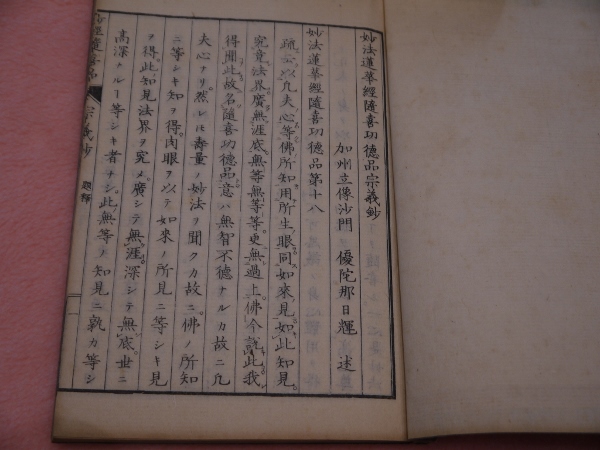 妙法蓮華經隨喜功德品宗義鈔
加州立像沙門 優陀那日輝 述
妙法蓮華經隨喜功德品第十八
疏云以凡夫心等佛所知用所生眼同如來見如此知見
究竟法界廣無涯底無等無等等更無過上佛今說此我
得聞此故名隨喜功德品意ハ無智不德ナルカ故ニ凡
夫心ナリ然レ𪜈壽量ノ妙法ヲ聞クカ故ニ佛ノ所知
ニ等シキ知ヲ得肉眼ヲ以テ如來ノ所見ニ等シキ見
ヲ得此知見法界ヲ究メ廣シテ無涯深シテ無底世ニ
高深ナルヿ等シキ者ナシ此無等ノ知見ニ孰カ等シ
妙經隨喜品 宗義抄 題釋